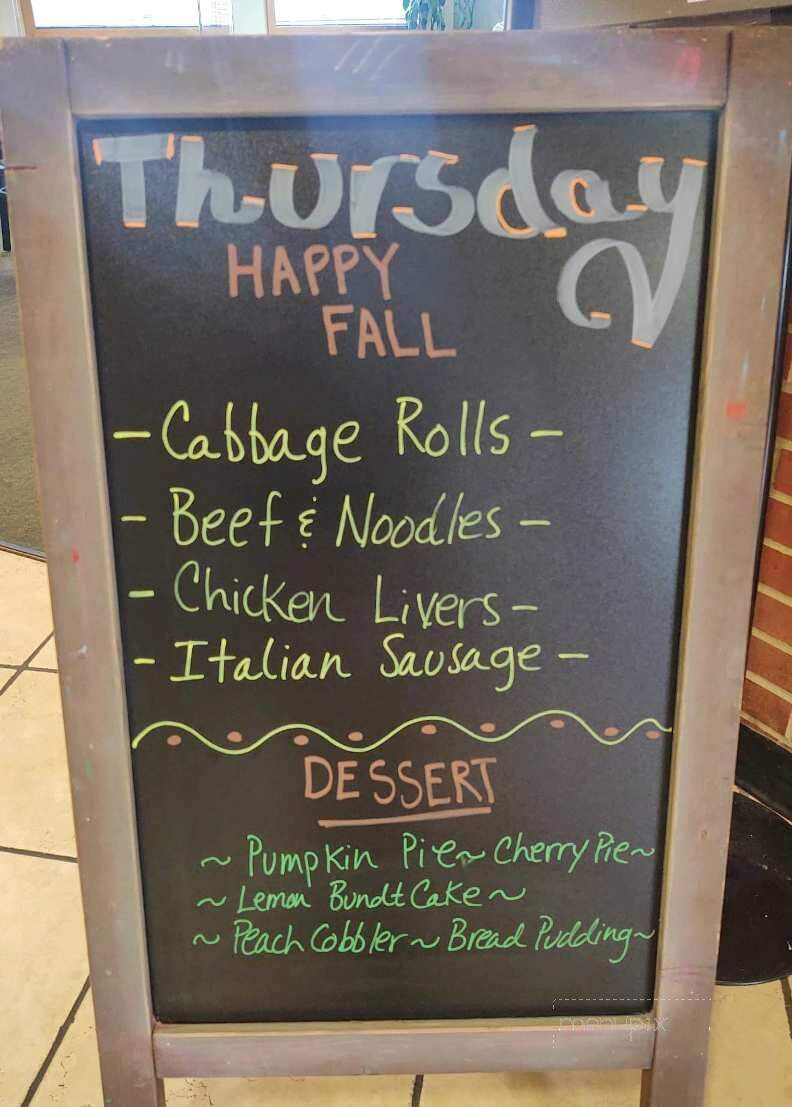 Thursday
HAPPY
FALL
- Cabbage Rolls -
- Beef & Noodles -
- Chicken Livers -
- Italian Sausage -
DESSERT
~ Pumpkin Pie ~ Cherry Pie ~
~ Lemon Bundt Cake ~
~ Peach Cobbler ~ Bread Pudding ~
menupix